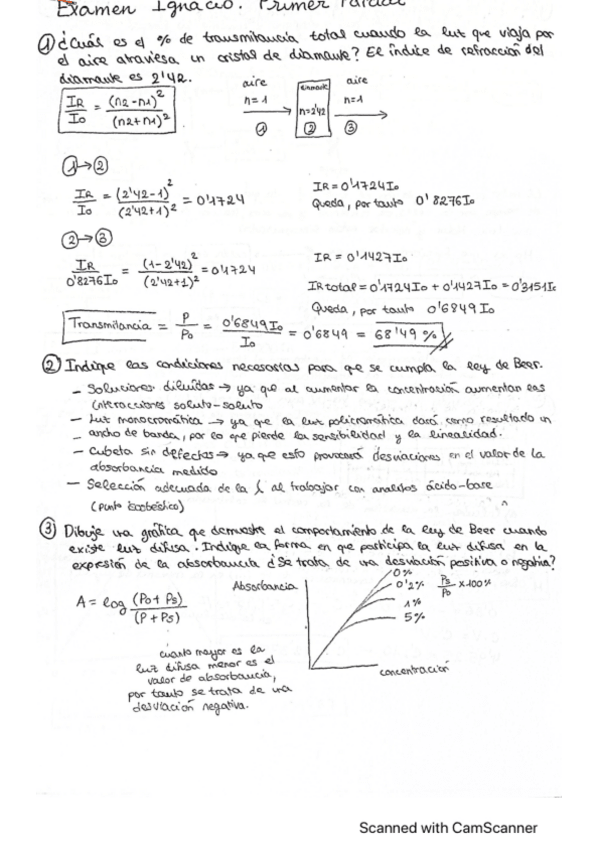 Examen Ignacio. Primer Parcial
① ¿Cuál es el % de transmitancia total cuando la luz que viaja por
el aire atraviesa un cristal de diamante? El índice de refracción del
diamante es 2'42.
IR/I0 = (n2-n1)²/(n2+n1)²
aire n=1 ①
diamante n=2'42 ②
aire n=1 ③
①→②
IR/I0 = (2'42-1)²/(2'42+1)² = 0'1724
IR = 0'1724 I0
Queda, por tanto 0'8276 I0
②→③
IR/0'8276 I0 = (1-2'42)²/(2'42+1)² = 0'1724
IR = 0'1427 I0
IR total = 0'1724 I0 + 0'1427 I0 = 0'3151 I0
Queda, por tanto 0'6849 I0
Transmitancia = P/P0 = 0'6849 I0/I0 = 0'6849 = 68'49 %
② Indique las condiciones necesarias para que se cumpla la ley de Beer.
- Soluciones diluidas → ya que al aumentar la concentración aumentan las
interacciones soluto-soluto
- Luz monocromática → ya que la luz policromática dará como resultado un
- ancho de banda, por lo que pierde la sensibilidad y la linealidad.
- Cubeta sin defectos → ya que esto provocará desviaciones en el valor de la
absorbancia medido
- Selección adecuada de la λ al trabajar con analitos ácido-base
(punto isosbéstico)
③ Dibuje una gráfica que demuestre el comportamiento de la ley de Beer cuando
existe luz difusa. Indique la forma en que participa la luz difusa en la
expresión de la absorbancia ¿Se trata de una desviación positiva o negativa?
A = log (P0 + Ps)/(P + Ps)
Absorbancia
0%
0'2%
1%
5%
Ps/P0 x 100%
concentración
cuanto mayor es la
luz difusa menor es el
valor de absorbancia,
por tanto se trata de una
desviación negativa.
Scanned with CamScanner